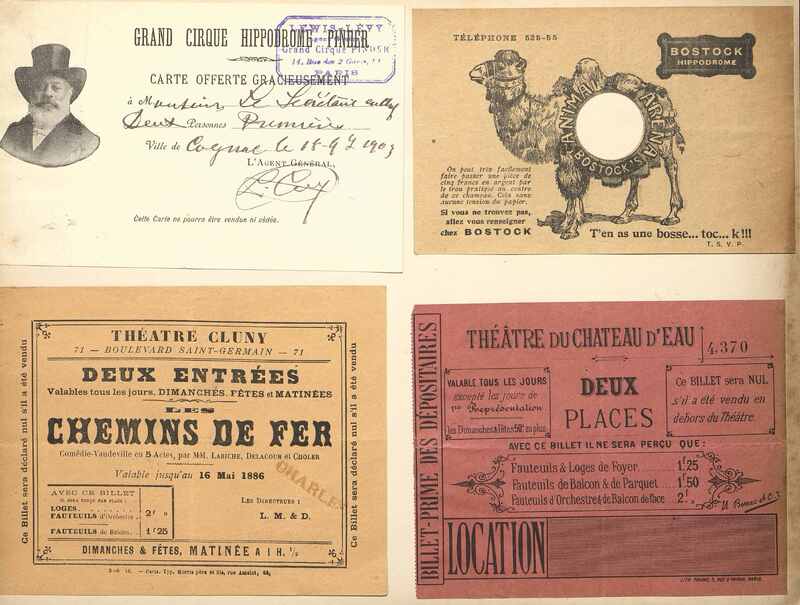 GRAND CIRQUE HIPPODROME PINDER
LEWIS-LÉVY
Grand Cirque PINDER
PARIS
CARTE OFFERTE GRACIEUSEMENT
à Monsieur Le Secrétaire
Deux Personnes Premières
Ville de Cognac le 18-9 1903
L'AGENT GÉNÉRAL,
Cette Carte ne pourra être vendue ni cédée.
TÉLÉPHONE 525-55
BOSTOCK
HIPPODROME
ANIMAL ARENA
BOSTOCK'S
On peut très facilement
faire passer une pièce de
cinq francs en argent par
le trou pratiqué au centre
de ce chameau. Cela sans
aucune tension du papier.
Si vous ne trouvez pas,
allez vous renseigner
chez BOSTOCK
T'en as une bosse... toc... k!!!
T. S. V. P.
Ce Billet sera déclaré nul s'il a été vendu
THÉATRE CLUNY
71 — BOULEVARD SAINT-GERMAIN — 71
DEUX ENTRÉES
Valables tous les jours, DIMANCHES, FÊTES et MATINÉES
LES
CHEMINS DE FER
Comédie-Vaudeville en 5 Actes, par MM. LABICHE, DELACOUR et CHOLER
Valable jusqu'au 16 Mai 1886
CHARLES
AVEC CE BILLET
IL SERA PERÇU PAR PLACE :
LOGES
FAUTEUILS d'Orchestre 2f »
FAUTEUILS de Balcon 1f25
LES DIRECTEURS :
L. M. & D.
DIMANCHES & FÊTES, MATINÉE A 1 H. 1/2
Ce Billet sera déclaré nul s'il a été vendu
Paris. Typ. Morris père et fils, rue Amelot, 64.
BILLET-PRIME DES DÉPOSITAIRES
THÉÂTRE DU CHATEAU D'EAU
4.370
VALABLE TOUS LES JOURS
excepté les jours de
1re Représentation
les Dimanches & Fêtes 50c en plus
DEUX
PLACES
Ce BILLET sera NUL
s'il a été vendu en
dehors du Théâtre.
AVEC CE BILLET IL NE SERA PERÇU QUE :
Fauteuils & Loges de Foyer 1f25
Fauteuils de Balcon & de Parquet 1f50
Fauteuils d'Orchestre & de Balcon de face 2f »
LOCATION